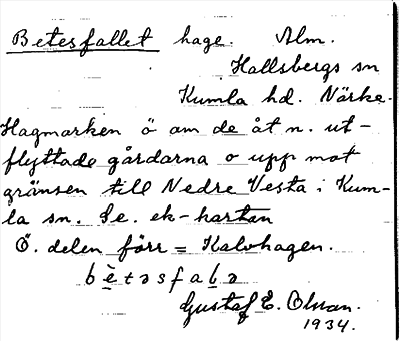 Betesfallet hage. Alm.
Hallsbergs sn
Kumla hd. Närke.
Hagmarken ö om de åt n. ut-
flyttade gårdarna o upp mot
gränsen till Nedre Vesta i Kum-
la sn. Se. ek-kartan
Ö. delen förr = Kalvhagen.
Gustaf E. Olsson.
1934.